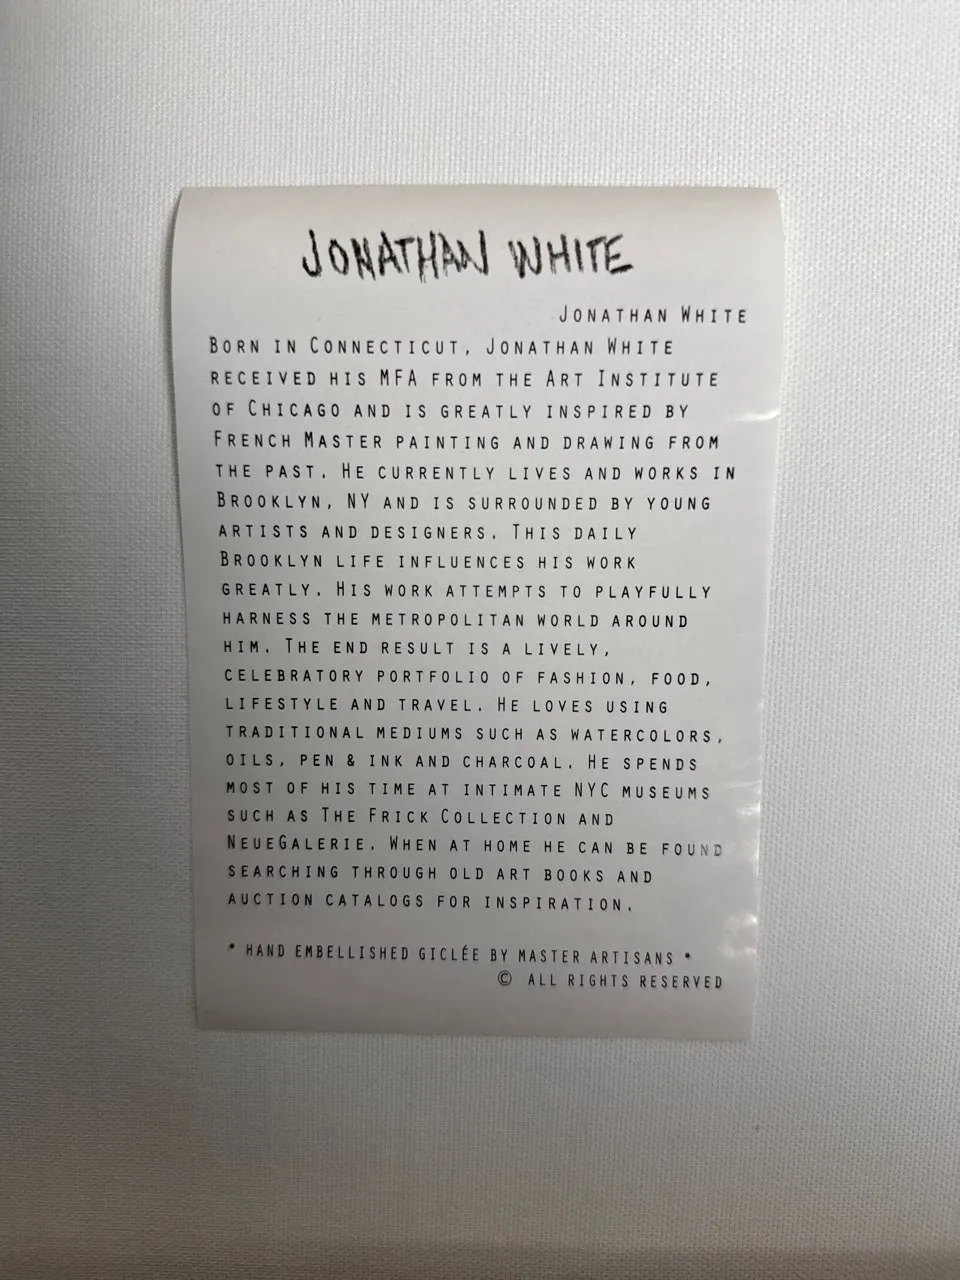 JONATHAN WHITE
JONATHAN WHITE
BORN IN CONNECTICUT, JONATHAN WHITE
RECEIVED HIS MFA FROM THE ART INSTITUTE
OF CHICAGO AND IS GREATLY INSPIRED BY
FRENCH MASTER PAINTING AND DRAWING FROM
THE PAST. HE CURRENTLY LIVES AND WORKS IN
BROOKLYN, NY AND IS SURROUNDED BY YOUNG
ARTISTS AND DESIGNERS. THIS DAILY
BROOKLYN LIFE INFLUENCES HIS WORK
GREATLY. HIS WORK ATTEMPTS TO PLAYFULLY
HARNESS THE METROPOLITAN WORLD AROUND
HIM. THE END RESULT IS A LIVELY,
CELEBRATORY PORTFOLIO OF FASHION, FOOD,
LIFESTYLE AND TRAVEL. HE LOVES USING
TRADITIONAL MEDIUMS SUCH AS WATERCOLORS,
OILS, PEN & INK AND CHARCOAL. HE SPENDS
MOST OF HIS TIME AT INTIMATE NYC MUSEUMS
SUCH AS THE FRICK COLLECTION AND
NEUEGALERIE. WHEN AT HOME HE CAN BE FOUND
SEARCHING THROUGH OLD ART BOOKS AND
AUCTION CATALOGS FOR INSPIRATION.
* HAND EMBELLISHED GICLÉE BY MASTER ARTISANS *
© ALL RIGHTS RESERVED